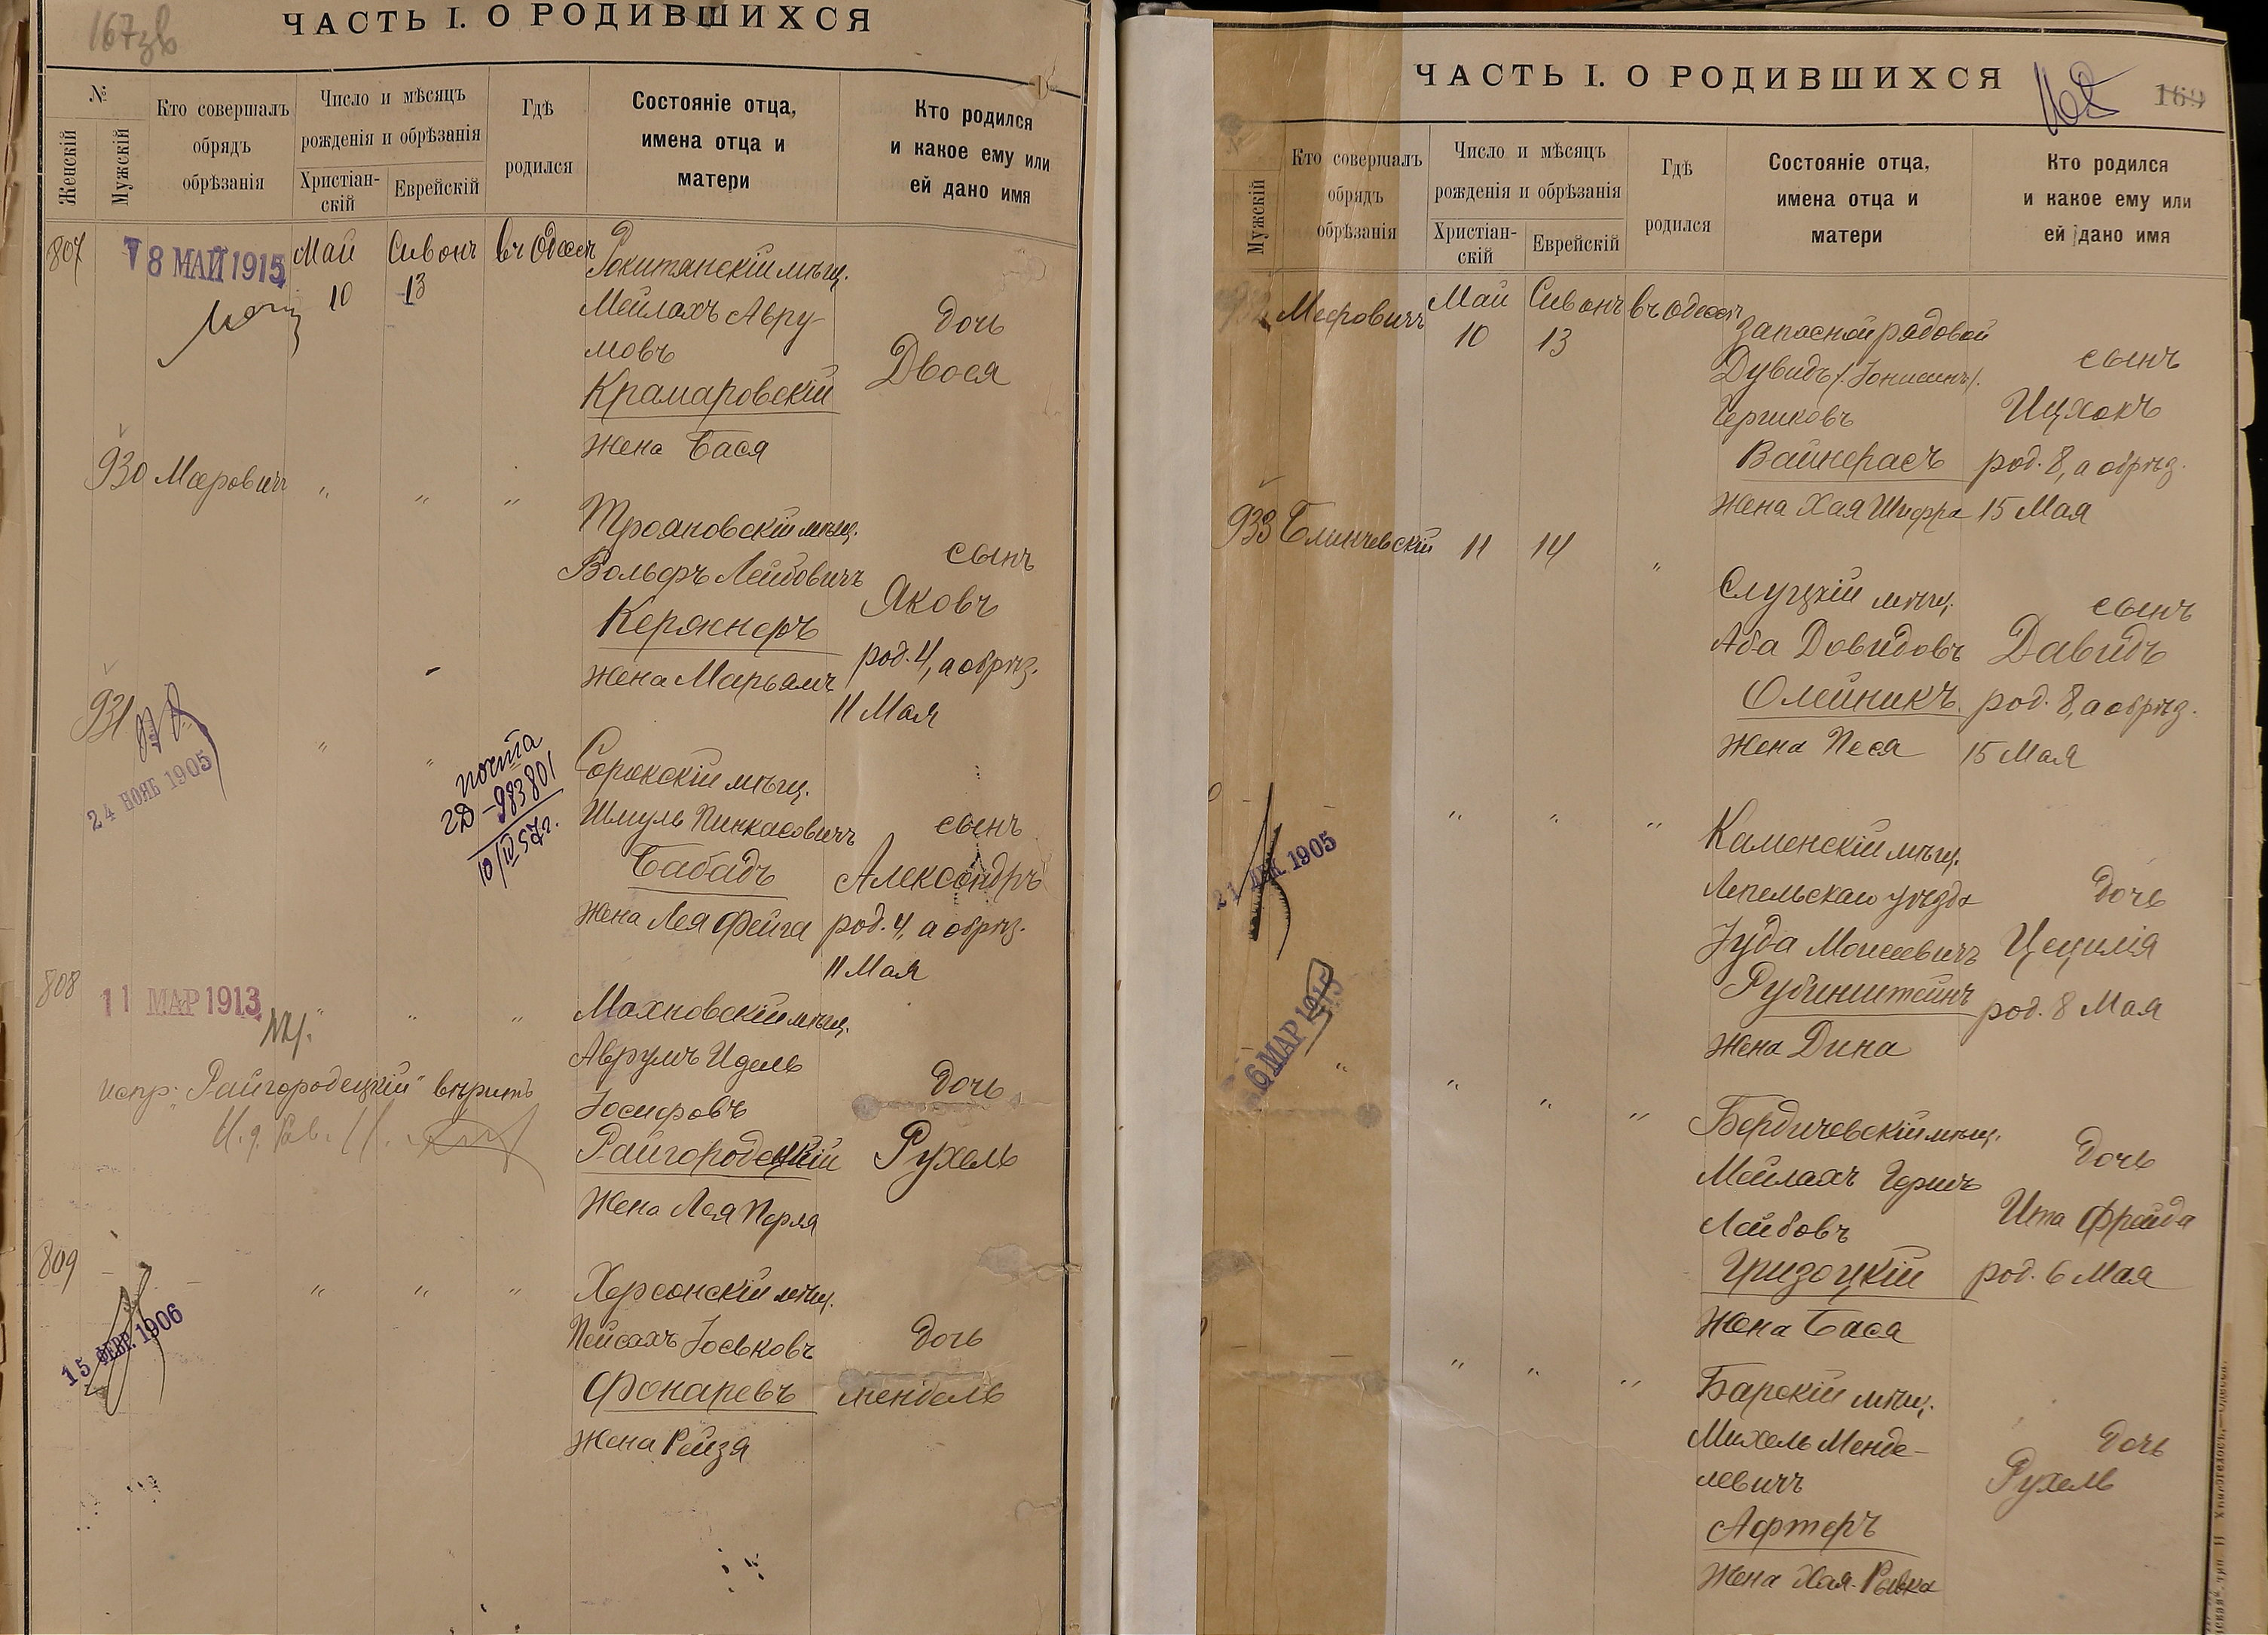 167зв
ЧАСТЬ I. О РОДИВШИХСЯ
№
Женскій
Мужскій
Кто совершалъ
обрядъ
обрѣзанія
Число и мѣсяцъ
рожденія и обрѣзанія
Христіан-
скій
Еврейскій
Гдѣ
родился
Состояніе отца,
имена отца и
матери
Кто родился
и какое ему или
ей дано имя
807
8 МАЙ 1915
Май
10
Сивонъ
13
въ Одессѣ
Рокитянскій мѣщ.
Мейлахъ Авру-
мовъ
Крамаровскій
Жена Бася
дочь
Двося
930 Меерович
" " "
Трояновскій мѣщ.
Вольфъ Лейбовичъ
Кержнеръ
Жена Марьямъ
сынъ
Яковъ
род. 4, а обрѣз.
11 Мая
931
24 НОЯБ 1905
" "
почта
2Д - 983801
10/IV 57г.
Сорокскій мѣщ.
Шмуль Пинкасовичъ
Бабадъ
Жена Лея Фейга
сынъ
Александръ
род. 4, а обрѣз.
11 Мая
808
11 МАР 1913
" " "
испр: "Райгородецкій" вѣрить
Махновскій мѣщ.
Аврумъ Идель
Іосифовъ
Райгородецкій
Жена Лея Перля
дочь
Рухель
809
15 ФЕВР. 1906
" " "
Херсонскій мѣщ.
Пейсахъ Іоськовъ
Фонаревъ
Жена Рейзя
дочь
Мендель
ЧАСТЬ I. О РОДИВШИХСЯ
168
169
Мужскій
Кто совершалъ
обрядъ
обрѣзанія
Число и мѣсяцъ
рожденія и обрѣзанія
Христіан-
скій
Еврейскій
Гдѣ
родился
Состояніе отца,
имена отца и
матери
Кто родился
и какое ему или
ей дано имя
932 Меерович
Май
10
Сивонъ
13
въ Одессѣ
Запасной рядовой
Дувидъ /Іонисинъ/
Гершковъ
Вайнерасъ
Жена Хая Шифра
сынъ
Ицхокъ
род. 8, а обрѣз.
15 Мая
933 Блинчевскій
11 14 "
Слуцкій мѣщ.
Аба Довидовъ
Олейникъ
Жена Песя
сынъ
Давидъ
род. 8, а обрѣз.
15 Мая
21 ДЕК. 1905
" " "
Каменскій мѣщ.
Лепельскаго уѣзда
Іуда Моисеевичъ
Рубинштейнъ
Жена Дина
дочь
Цецилія
род. 8 Мая
6 МАР 1915
" " "
Бердичевскій мѣщ.
Мейлахъ Гершъ
Лейбовъ
Гризоцкій
Жена Бася
дочь
Ита Фрейда
род. 6 Мая
" " "
Барскій мѣщ.
Михель Менде-
левичъ
Афтеръ
Жена Хая-Рывка
дочь
Рухель